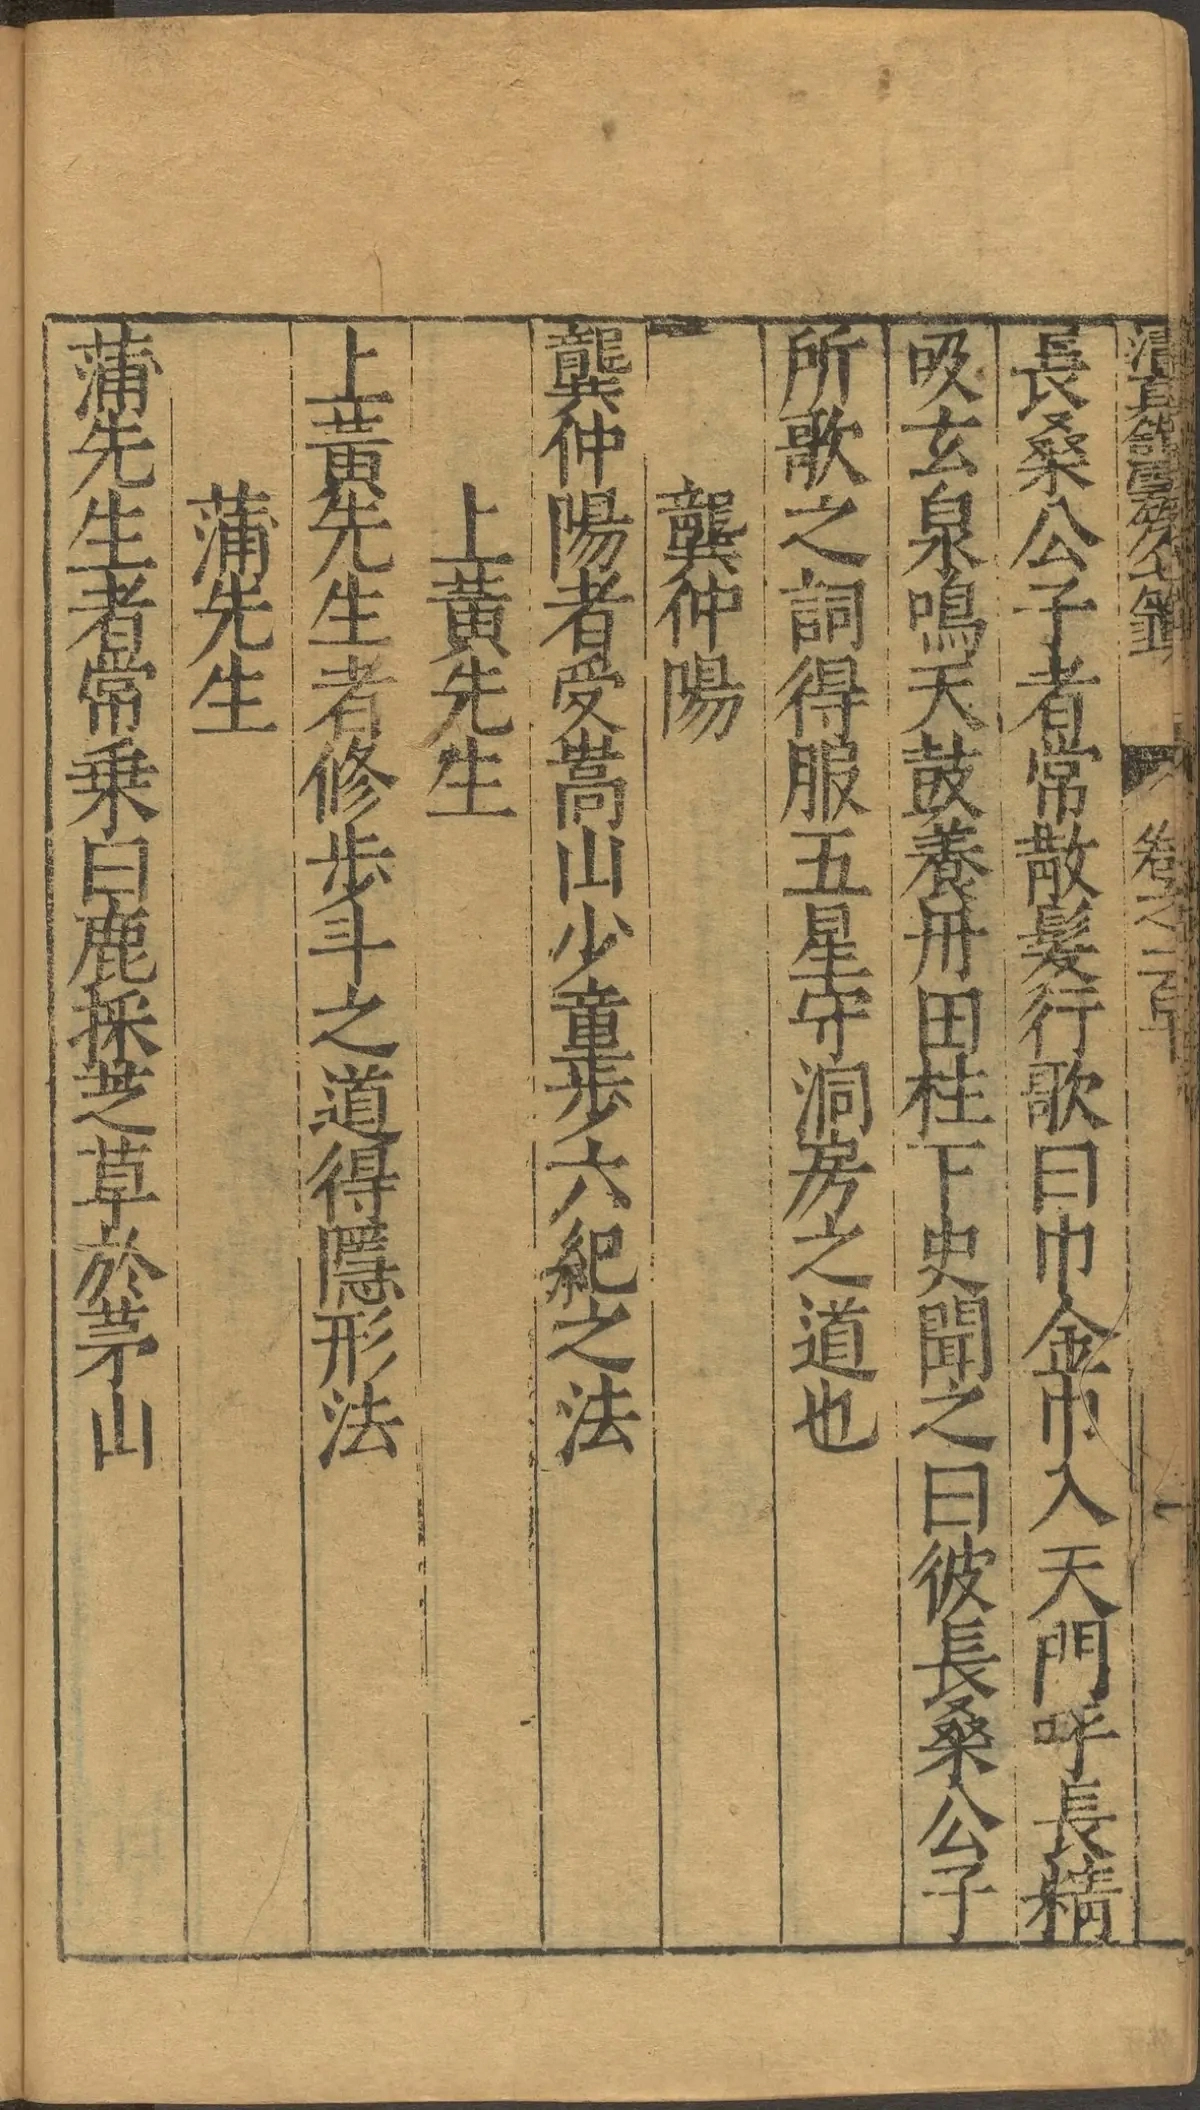 長桑公子者常散髮行歌曰巾金巾入天門呼長精
吸玄泉鳴天鼓養丹田柱下史聞之曰彼長桑公子
所歌之詞得服五星守洞房之道也
龔仲陽
龔仲陽者受嵩山少童步六紀之法
上黃先生
上黃先生者修步斗之道得隱形法
蒲先生
蒲先生者常乗白鹿採芝草於茅山